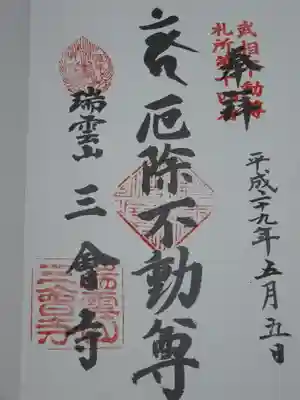 武相不動尊
札所第十四番
奉拝
平成二十九年五月五日
厄除不動尊
瑞雲山
三會寺
瑞雲山
三会寺